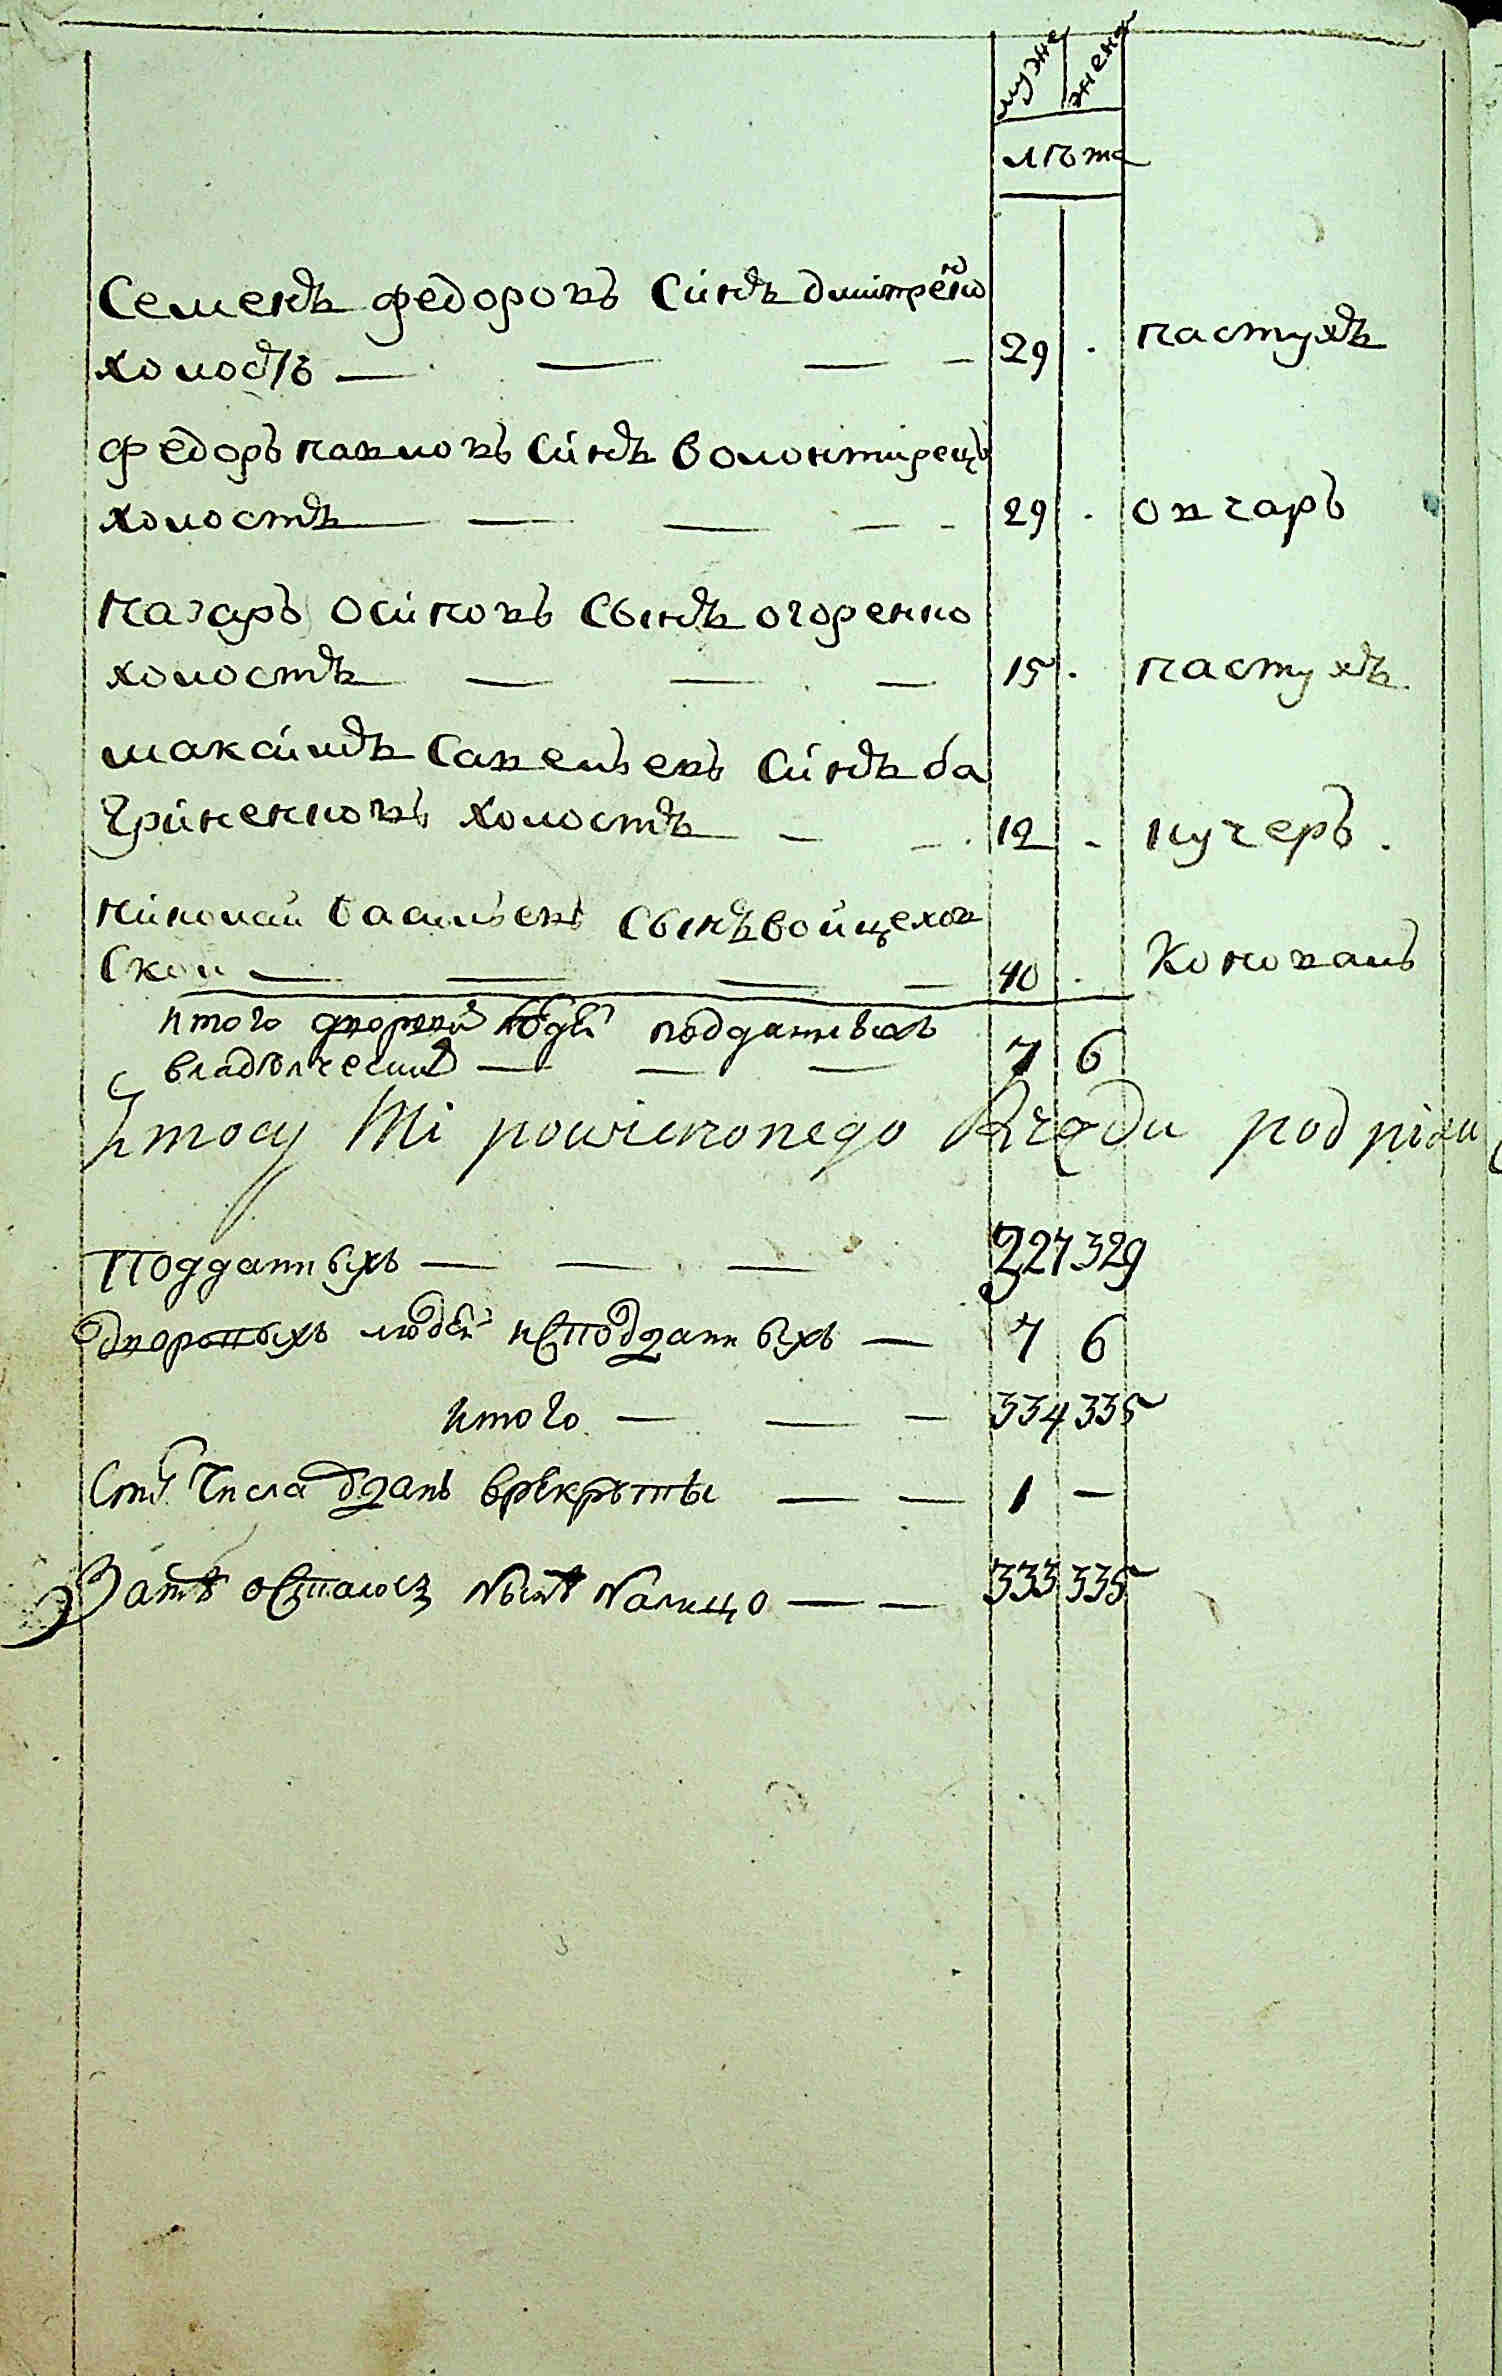 муже жена
лѣта
Семенъ федоровъ Синъ дмитренко
холостъ — — — — 29 . пастухъ
федоръ павловъ Синъ волонтирецъ
холостъ — — — — 29 . овчаръ
Назаръ осиповъ Сынъ огоренко
холостъ — — — 15 . пастухъ
максимъ Савельевъ Синъ ба
гриненковъ холостъ — — 12 . кучеръ.
Николай Васильевъ Сынъ войцехов
Скои — — — — 40 . Коновалъ
итого дворовы людей подданныхъ
владѣлческихъ — — — 7 6
Z mocy Mi powierzonego Urzędu podpisu
Подданныхъ — — — 327 329
дворовыхъ людей исподданныхъ — 7 6
итого — — — 334 335
Стого числа взданъ врекруты — — 1 —
Затѣмъ осталось нынѣ налицо — — 333 335